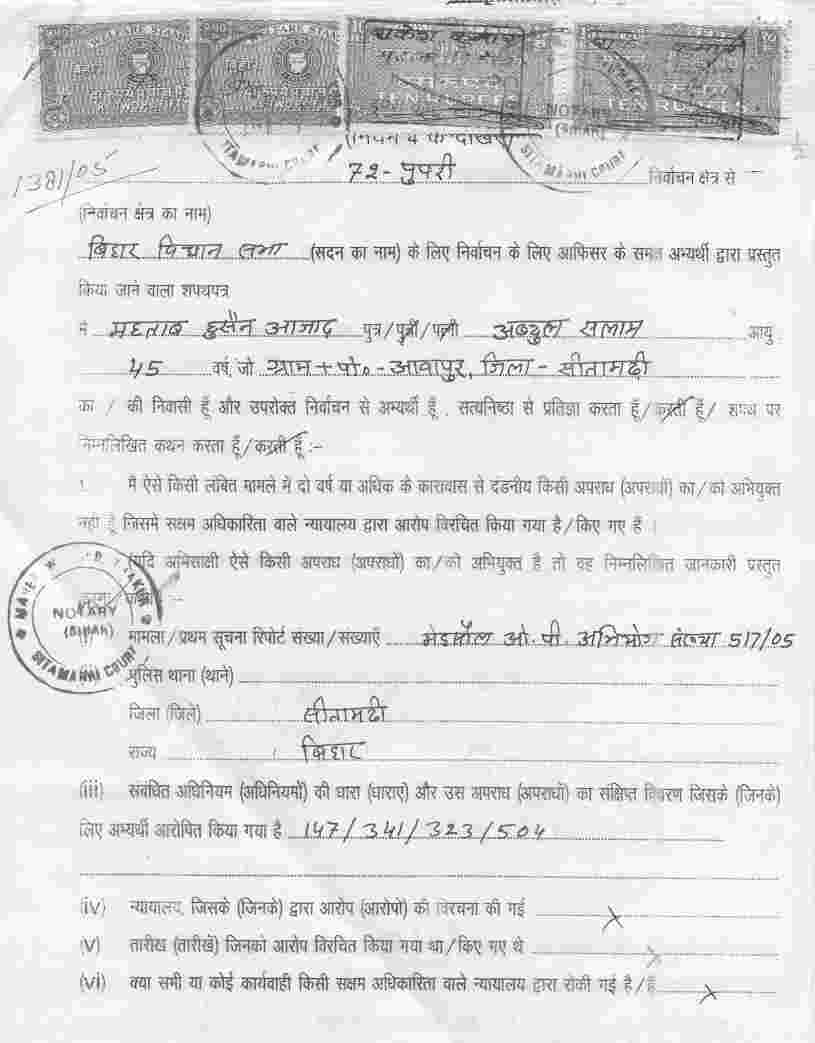 WELFARE STAMP
बिहार
राकेश कुमार
TEN RUPEES
TEN RUPEES
NOTARY
(BIHAR)
SITAMARHI COURT
SITAMARHI COURT
1381/05
72- पुपरी निर्वाचन क्षेत्र से
(निर्वाचन क्षेत्र का नाम)
बिहार विधान सभा (सदन का नाम) के लिए निर्वाचन के लिए आफिसर के समक्ष अभ्यर्थी द्वारा प्रस्तुत
किया जाने वाला शपथपत्र
मैं महताब हुसैन आजाद पुत्र/पुत्री/पत्नी अब्दुल सलाम आयु
45 वर्ष, जो ग्राम + पो॰ - आवापुर, जिला - सीतामढ़ी
का / की निवासी हूँ और उपरोक्त निर्वाचन से अभ्यर्थी हूँ , सत्यनिष्ठा से प्रतिज्ञा करता हूँ/करती हूँ/ शपथ पर
निम्नलिखित कथन करता हूँ/करती हूँ :-
1. मैं ऐसे किसी लंबित मामले में दो वर्ष या अधिक के कारावास से दंडनीय किसी अपराध (अपराधों) का/को अभियुक्त
नहीं हूँ जिसमे सक्षम अधिकारिता वाले न्यायालय द्वारा आरोप विरचित किया गया है/किए गए हैं ।
(यदि अभिसाक्षी ऐसे किसी अपराध (अपराधों) का/को अभियुक्त है तो वह निम्नलिखित जानकारी प्रस्तुत
NOTARY
(BIHAR)
SITAMARHI COURT
मामला/प्रथम सूचना रिपोर्ट संख्या/संख्याएँ ओ. पी. अभियोग संख्या 517/05
(ii) पुलिस थाना (थाने)
जिला (जिले) सीतामढ़ी
राज्य बिहार
(iii) संबंधित अधिनियम (अधिनियमों) की धारा (धाराएं) और उस अपराध (अपराधों) का संक्षिप्त विवरण जिसके (जिनके)
लिए अभ्यर्थी आरोपित किया गया है 147/341/323/504
(iv) न्यायालय, जिसके (जिनके) द्वारा आरोप (आरोपो) की विरचना की गई X
(v) तारीख (तारीखें) जिनको आरोप विरचित किया गया था/किए गए थे X
(vi) क्या सभी या कोई कार्यवाही किसी सक्षम अधिकारिता वाले न्यायालय द्वारा रोकी गई है/हैं X